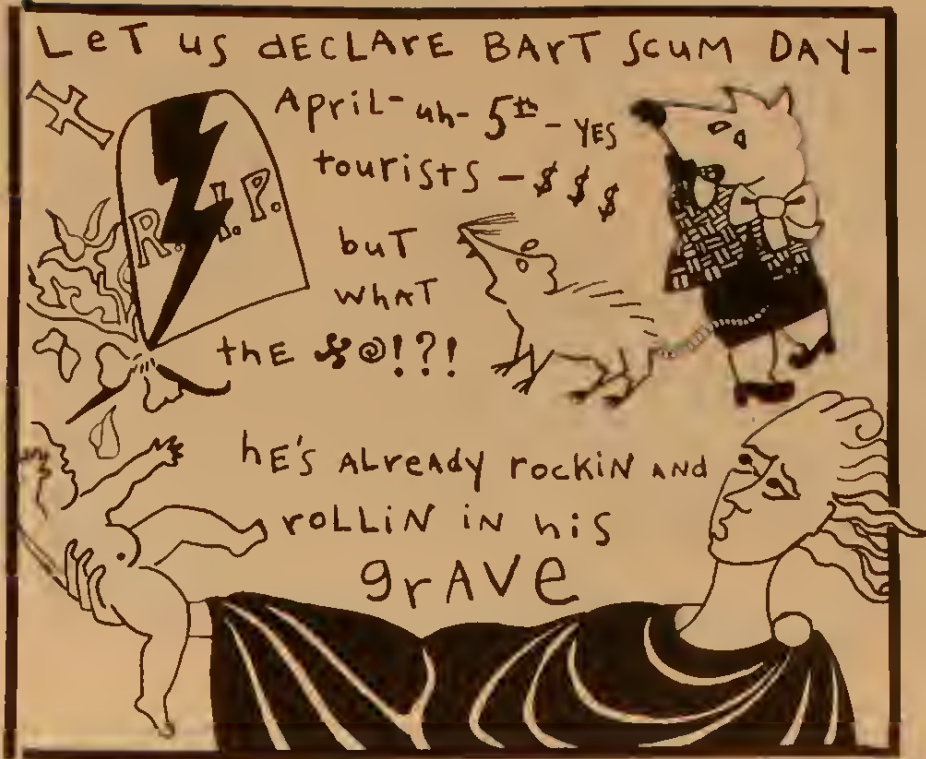 LeT us dECLArE BArT ScuM DAY-
April- uh- 5th - YES
tourists - $ $ $
R.I.P.
buT
wHAT
thE ※@!?!
hE'S ALreADy rockiN AND
roLLiN iN his
grAVe